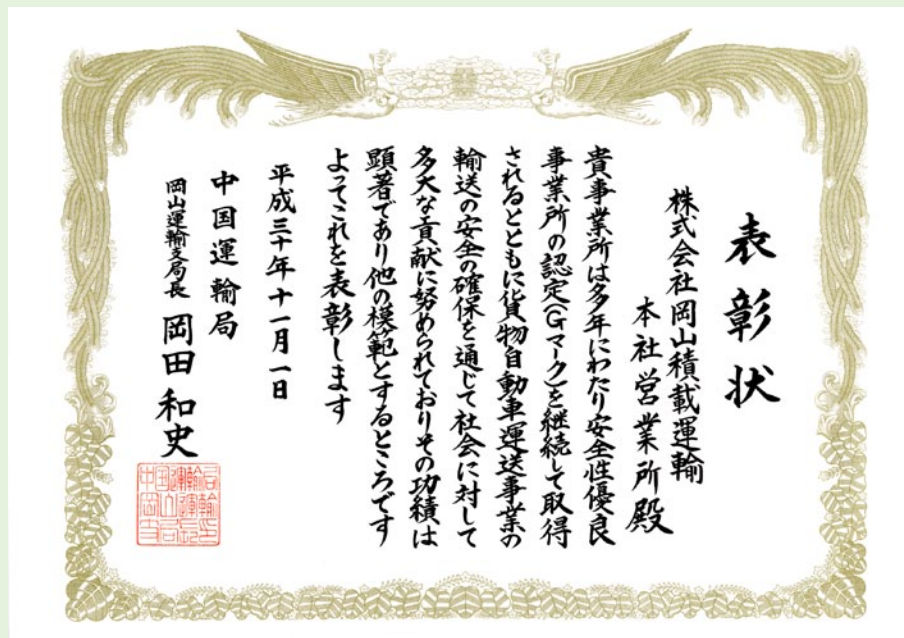 表彰状
株式会社岡山積載運輸
本社営業所殿
貴事業所は多年にわたり安全性優良
事業所の認定(Gマーク)を継続して取得
されるとともに貨物自動車運送事業の
輸送の安全の確保を通じて社会に対して
多大な貢献に努められておりその功績は
顕著であり他の模範とするところです
よってこれを表彰します
平成三十年十一月一日
中国運輸局
岡山運輸支局長 岡田和史